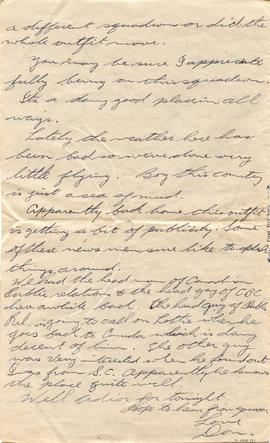 a different squadron or did the
whole outfit move.
You may be sure I appreciate
fully being on this squadron.
Its a dang good place in all
ways.
Lately the weather here has
been bad so weve done very
little flying. Boy this country
is just a sea of mud.
Apparently back home this outfit
is getting a bit of publicity. Some
of these news men sure like to splash
things around.
We had the head man of Canadian
Public relations & the head guy of CBC
here awhile back. The head guy of Public
Rel. is going to call on Lottie when he
goes back to Canada which is dang
decent of him. The other guy
was very interested when he found out
I was from S.C. Apparently he knows
the place quite well.
Well adios for tonight.
Hope to hear from you soon
Love
Don.